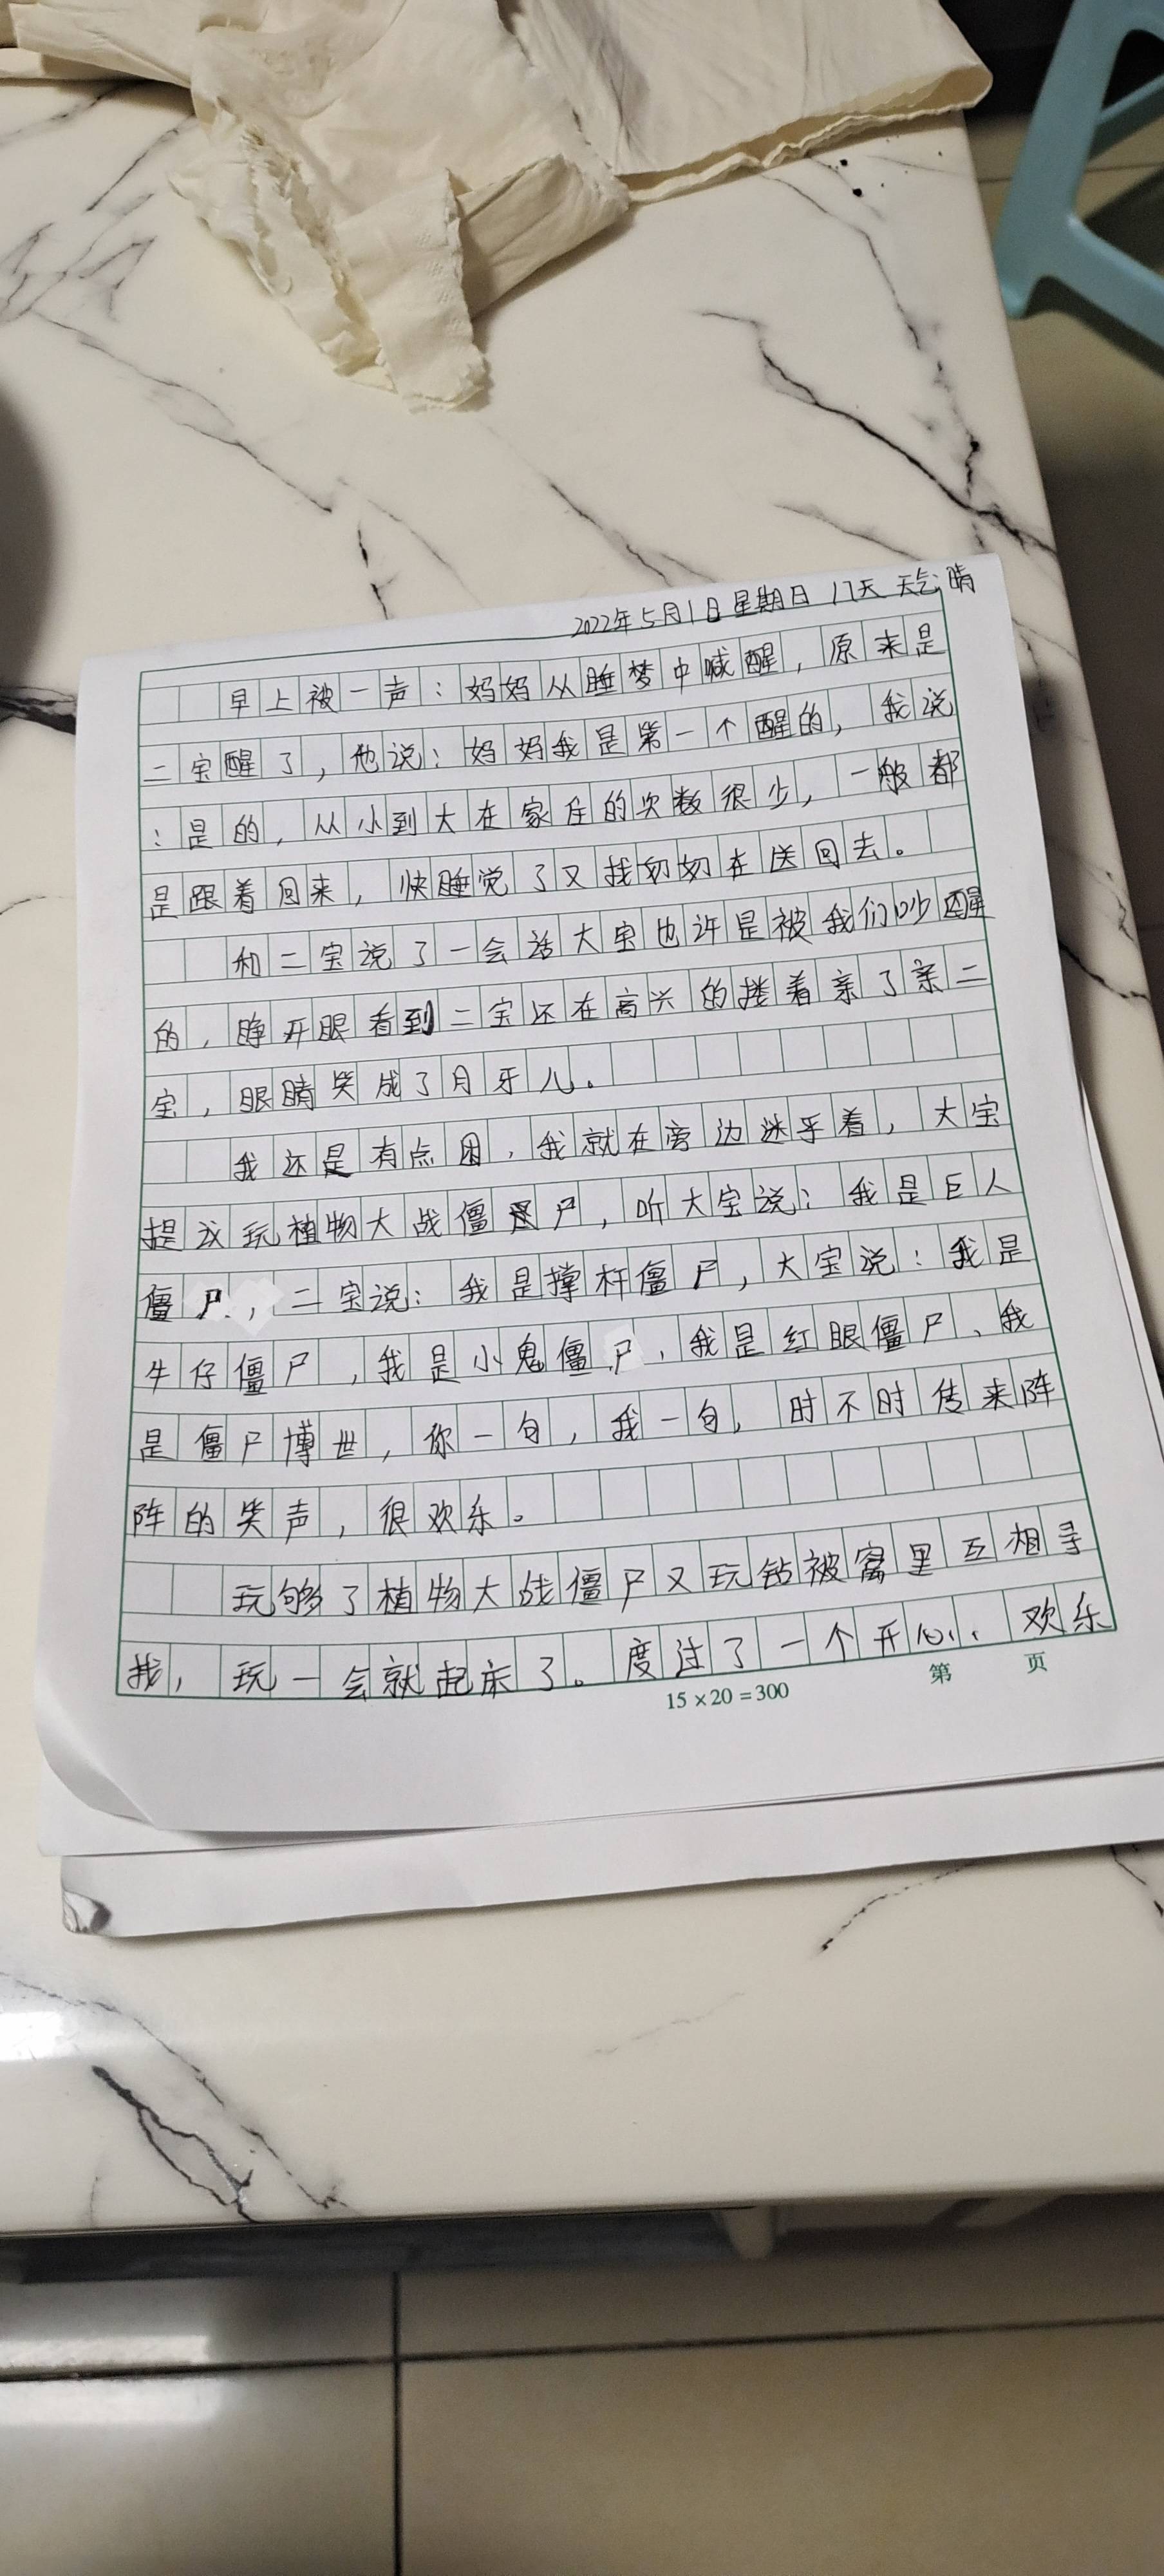 2022年5月1日星期日 17天 天气晴
早上被一声：妈妈从睡梦中喊醒，原来是
二宝醒了，他说：妈妈我是第一个醒的，我说
：是的，从小到大在家住的次数很少，一般都
是跟着回来，快睡觉了又找奶奶在送回去。
和二宝说了一会话大宝也许是被我们吵醒
的，睁开眼看到二宝还在高兴的搂着亲了亲二
宝，眼睛笑成了月牙儿。
我还是有点困，我就在旁边迷乎着，大宝
提议玩植物大战僵尸，听大宝说：我是巨人
僵尸，二宝说：我是撑杆僵尸，大宝说：我是
牛仔僵尸，我是小鬼僵尸，我是红眼僵尸、我
是僵尸博世，你一句，我一句，时不时传来阵
阵的笑声，很欢乐。
玩够了植物大战僵尸又玩钻被窝里互相寻
找，玩一会就起床了。度过了一个开心、欢乐
15×20=300
第 页